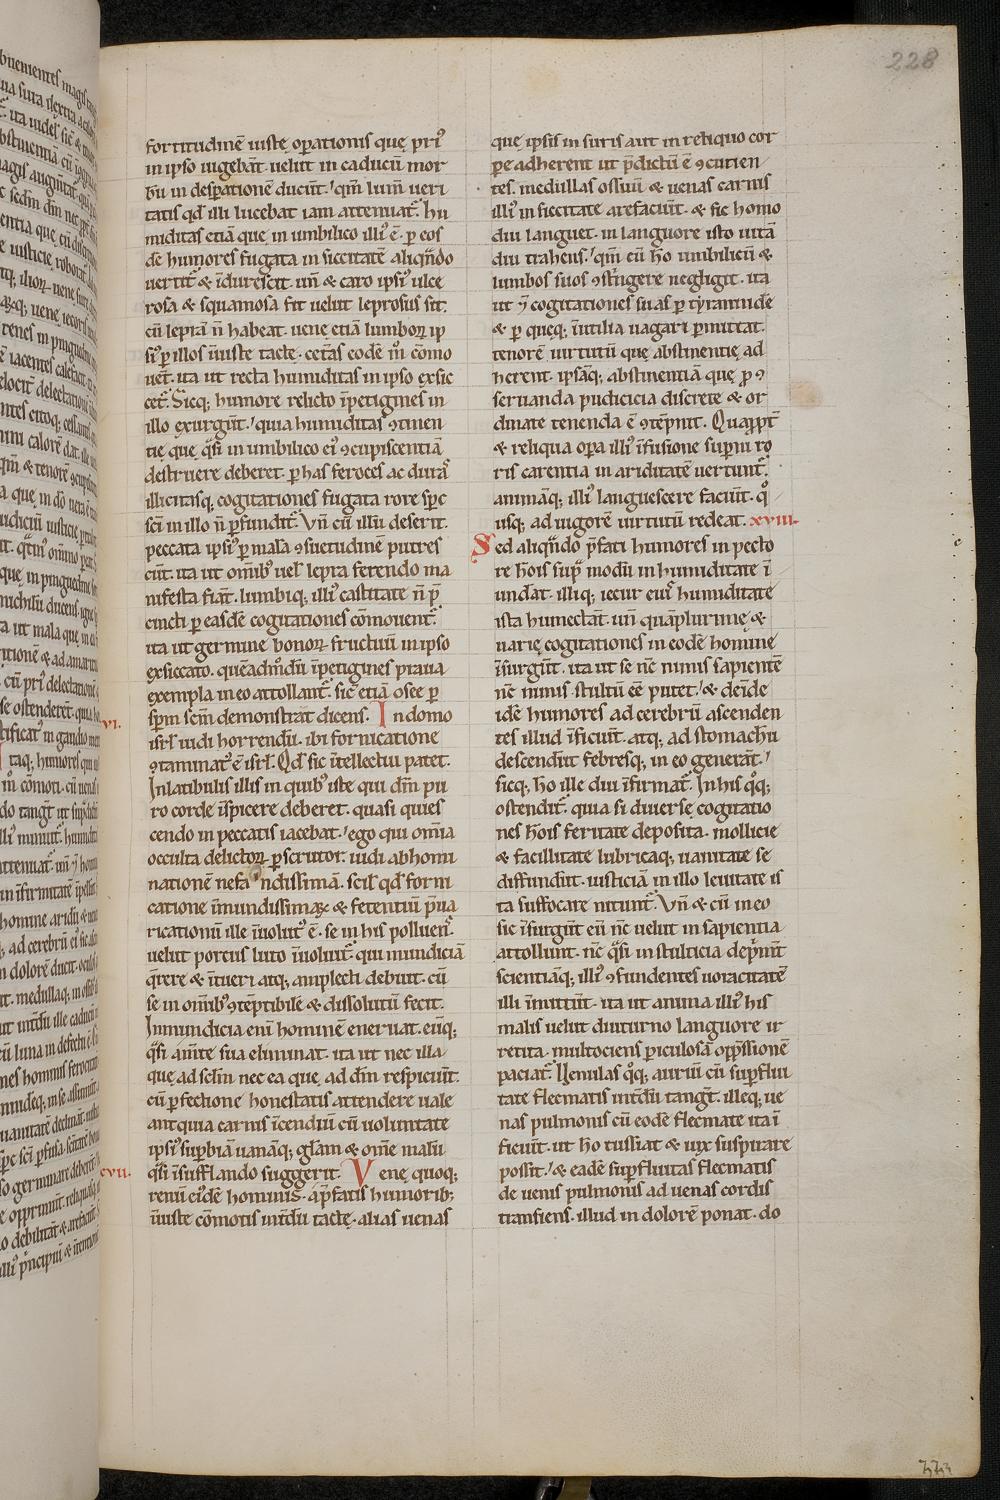 228
fortitudinē iuste op̄ationis quę pri᷒
in ipso uigebāt. uelut in caducū mor
bū in desꝑationē ducūt. qm̄ lum̄ ueri
tatis qd̄ illi lucebat iam attenuat᷑. hu
miditas etiā quę in umbilico illi᷒ ē. ꝑ eos
dē humores fugata in siccitatē aliqn̄do
uertit᷑ & īdurescit. uñ & caro ipsi᷒ ulce
rosa & squamosa fit uelut leprosus sit.
cū leprā ñ habeat. uene etiā lumboꝝ ip
si᷒ ꝑ illos īiuste tactę. cet̄as eodē m̊ cōmo
uēt. ita ut recta humiditas in ipso exsic
cet᷑. Sicq; humore relicto īpetigines in
illo exurgūt. quia humiditas ꝯtinen
tię quę q̄si in umbilico ei᷒ ꝯcupiscentiā
destruere deberet. ꝑ has feroces ac duras
illicitasq; cogitationes fugata rore sp̄c
sc̄i in illo ñ ꝑfundit᷑. Vñ cū illū deserit.
peccata ipsi᷒ ꝑ mala ꝯsuetudinē putres
cūt. ita ut om̄ib᷒ uel᷑ lepra ferendo ma
nifesta fiāt. lumbiq; illi᷒ castitate ñ p̄
cincti ꝑ easdē cogitationes cōmouent᷑.
ita ut germine bonoꝝ fructuū in ipso
exsiccato. quēadm̄dū īpetigines praua
exempla in eo attollant᷑. sic̄ etiā osee ꝑ
sp̄m sc̄m demonstrat dicens. In domo
isrl̄ uidi horrendū. ibi fornicatione
ꝯtaminat᷒ ē isrl̄. Qd̄ sic ītellectui patet.
In latibulis illis in quib᷒ iste qui dm̄ pu
ro corde īspicere deberet. quasi quies
cendo in peccatis iacebat. ego qui om̄ia
occulta delictoꝝ ꝑscrutor. uidi abhomi
nationē nefandissimā. scil᷑ qd̄ forni
catione īmundissimaꝝ & fetentiū p̄ua
ricationū ille īuolut᷒ ē. se in his polluen̄.
uelut porcus luto īuoluit᷑. qui mundiciā
q̄rere & ītueri atq; amplecti debuit. cū
se in om̄ib᷒ ꝯtēptibile & dissolutū fecit.
Inmundicia eni᷑ hominē eneruat. eūq;
q̄si amīte sua eliminat. ita ut nec illa
quę ad sclm̄ nec ea quę ad dm̄ respiciūt.
cū ꝑfectione honestatis attendere uale
ant quia carnis īcendiū cū uoluntate
ipsi᷒ suꝑbiā uanāq; glam̄ & om̄e malū
q̄si īsufflando suggerit. Vene quoq;
renū ei᷒dē hominis. a p̄fatis humorib;
īiuste cōmotis int̄dū tactę. alias uenas
quę ipsis in suris aut in reliquo cor
ꝑe adherent ut p̄dictū ē ꝯcutien
tes. medullas ossiuū & uenas carnis
illi᷒ in siccitate arefaciūt. & sic homo
diu languet. in languore isto uitā
diu trahens. qm̄ cū hō umbilicū &
lumbos suos ꝯstringere negligit. ita
ut & cogitationes suas ꝑ tyrannidē
& ꝑ queq; inutilia uagari ꝑmittat.
tenorē uirtutū quę abstinentię ad
herent. ipsāq; abstinentiā quę ꝓ ꝯ
seruanda pudicicia discrete & or
dinate tenenda ē ꝯtēpnit. Quapp̄t̄
& reliqua oꝑa illi᷒ īfusione supn̄i ro
ris carentia in ariditatē uertunt᷑.
animāq; illi᷒ languescere faciūt. q̊
usq; ad uigorē uirtutū redeat. xviii.
Sed aliqn̄do p̄fati humores in pecto
re hōis sup᷑ modū in humiditate ī
undāt. illiq; iecur eius humiditate
ista humectāt. uñ quāplurimę &
uarię cogitationes in eodē homine
īsurgūt. ita ut se nc̄ nimis sapientē
nc̄ nimis stultū eē putet. & deīde
idē humores ad cerebrū ascenden
tes illud īficiūt. atq; ad stomachū
descendūt febresq; in eo generāt.
sicq; hō ille diu īfirmat᷑. In his q̊q;
ostendit᷑. quia si diuersę cogitatio
nes hōis feritate deposita. mollicie
& facillitate lubricaq; uanitate se
diffundūt. iusticiā in illo leuitate is
ta suffocare nitunt᷑. Vñ & cū in eo
sic īsurgūt eū nc̄ uelut in sapientia
attollunt. nc̄ q̄si in stulticia dep̄mūt
scientiāq; illi᷒ ꝯfundentes uoracitatē
illi īmittūt. ita ut anima illi᷒ his
malis uelut diuturno languore ir
retita. multociens ꝑiculosā opp̄ssionē
paciat᷑. Uenulas q̊q; auriū cū suꝑflui
tate flecmatis int̄dū tangt̄. illeq; ue
nas pulmonis cū eodē flecmate ita ī
ficiūt. ut hō tussiat & uix suspirare
possit. & eadē suꝑfluitas flecmatis
de uenis pulmonis ad uenas cordis
transiens. illud in dolorē ponat. do